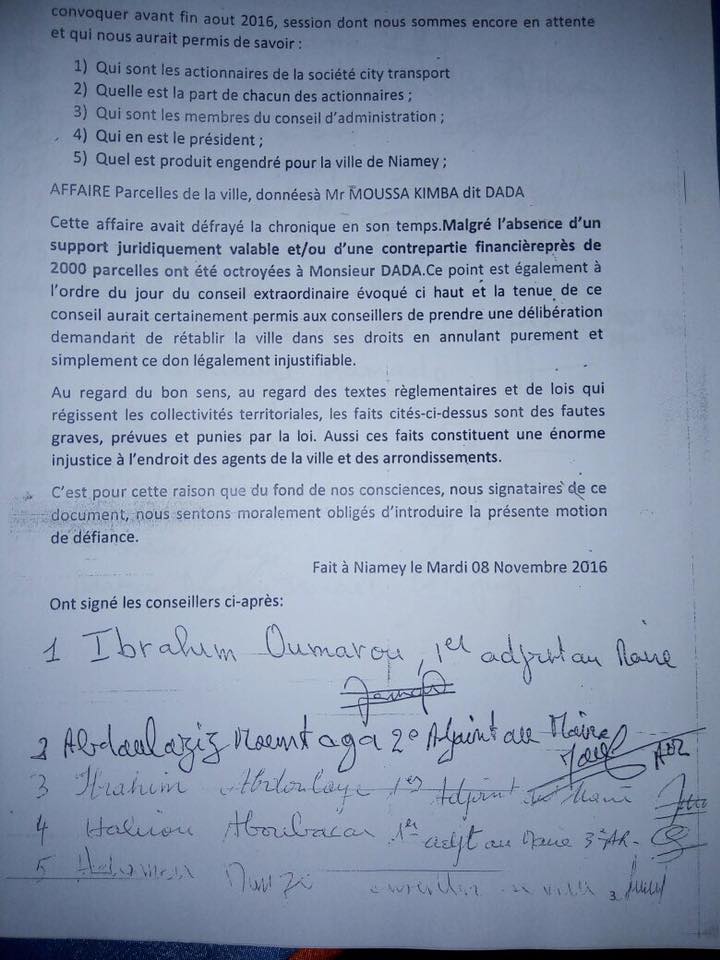 convoquer avant fin aout 2016, session dont nous sommes encore en attente
et qui nous aurait permis de savoir :
1) Qui sont les actionnaires de la société city transport
2) Quelle est la part de chacun des actionnaires ;
3) Qui sont les membres du conseil d'administration ;
4) Qui en est le président ;
5) Quel est produit engendré pour la ville de Niamey ;
AFFAIRE Parcelles de la ville, donnéesà Mr MOUSSA KIMBA dit DADA
Cette affaire avait défrayé la chronique en son temps.Malgré l'absence d'un
support juridiquement valable et/ou d'une contrepartie financièreprès de
2000 parcelles ont été octroyées à Monsieur DADA.Ce point est également à
l'ordre du jour du conseil extraordinaire évoqué ci haut et la tenue de ce
conseil aurait certainement permis aux conseillers de prendre une délibération
demandant de rétablir la ville dans ses droits en annulant purement et
simplement ce don légalement injustifiable.
Au regard du bon sens, au regard des textes règlementaires et de lois qui
régissent les collectivités territoriales, les faits cités-ci-dessus sont des fautes
graves, prévues et punies par la loi. Aussi ces faits constituent une énorme
injustice à l'endroit des agents de la ville et des arrondissements.
C'est pour cette raison que du fond de nos consciences, nous signataires de ce
document, nous sentons moralement obligés d'introduire la présente motion
de défiance.
Fait à Niamey le Mardi 08 Novembre 2016
Ont signé les conseillers ci-après:
1 Ibrahim Oumarou, 1er adjoint au Maire
2 Abdoulaziz 2e Adjoint au Maire
3 Ibrahim Abdoulaye 1er Adjoint au Maire
4 Aboubacar 1er adjt au Maire 3
5 conseiller ville